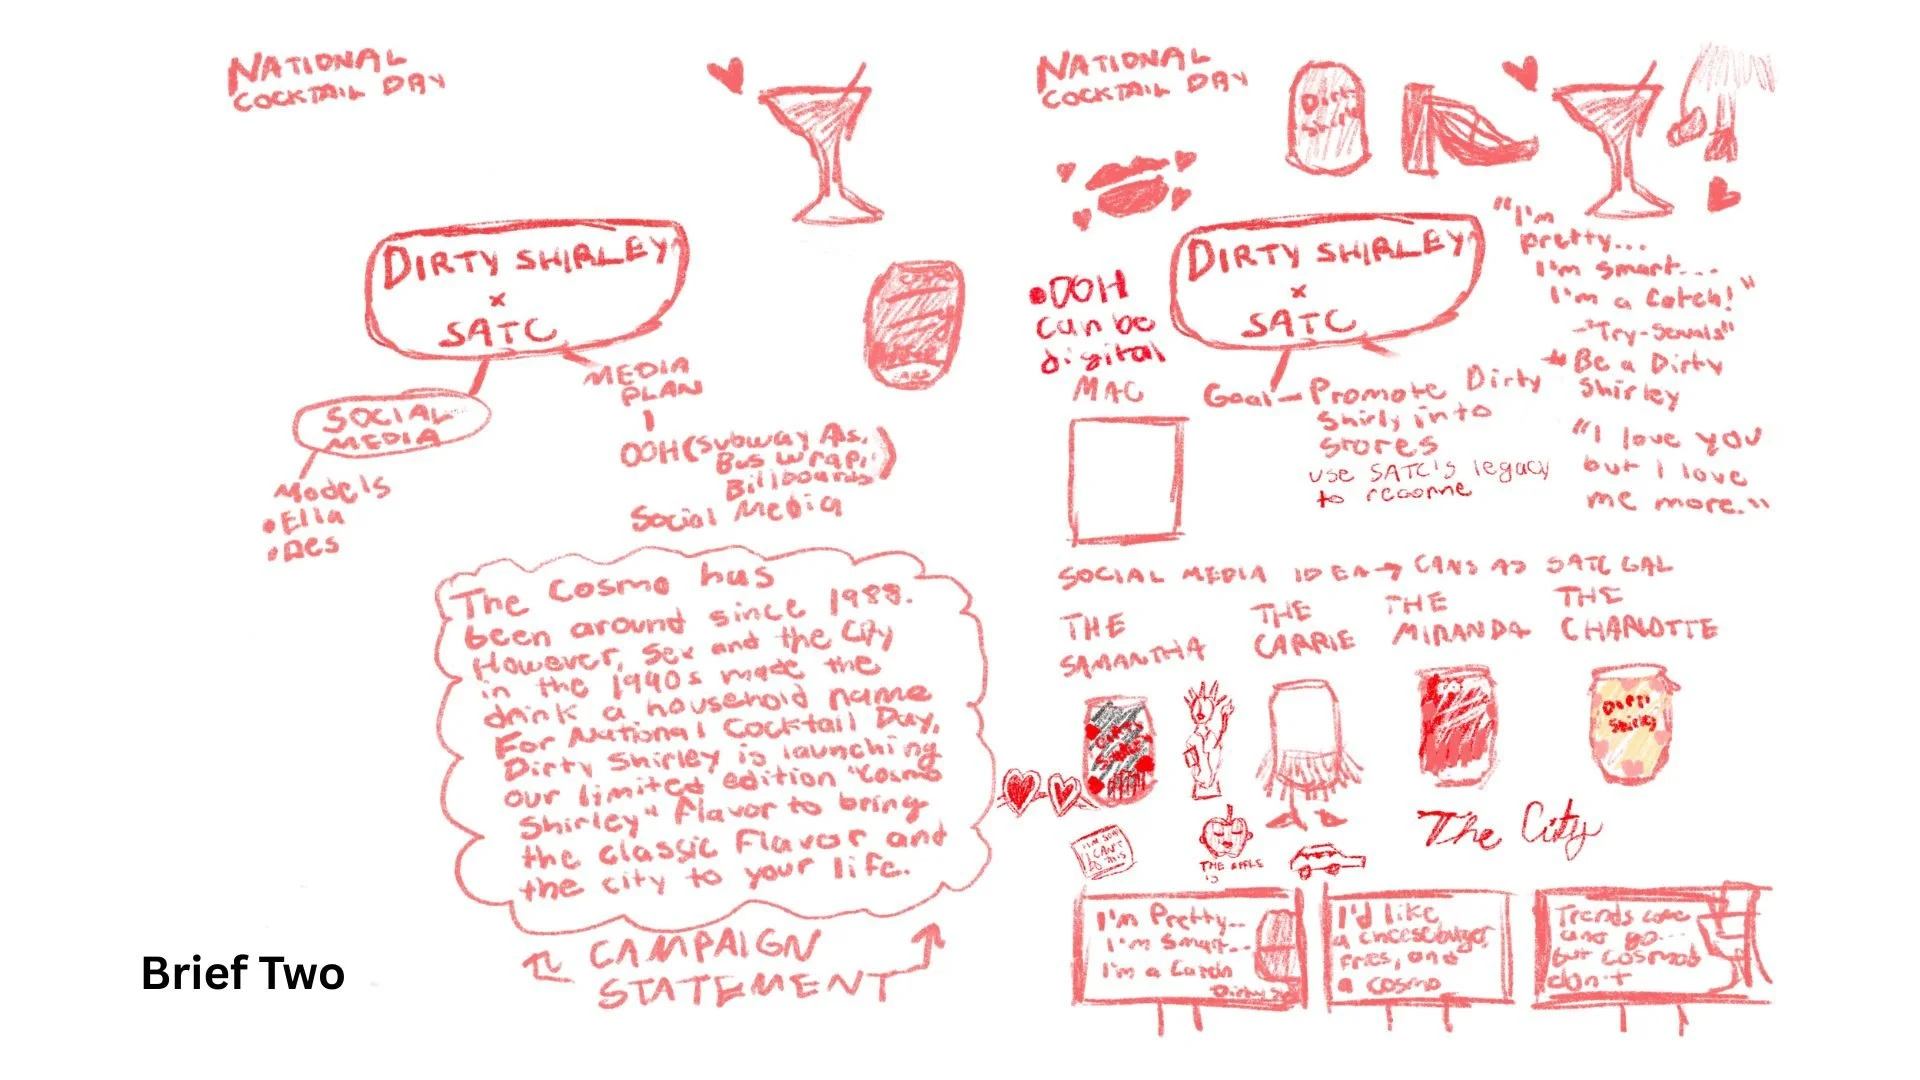 NATIONAL
COCKTAIL DAY
DIRTY SHIRLEY
x
SATC
SOCIAL
MEDIA
Models
• Ella
• Des
MEDIA
PLAN
OOH (Subway Ads,
Bus Wrap,
Billboards)
Social Media
The Cosmo has
been around since 1988.
However, Sex and the City
in the 1990s made the
drink a household name
For National Cocktail Day,
Dirty Shirley is launching
our limited edition "Cosmo
Shirley" flavor to bring
the classic flavor and
the city to your life.
CAMPAIGN
STATEMENT
Brief Two
NATIONAL
COCKTAIL DAY
Dirty
DIRTY SHIRLEY
x
SATC
• OOH
can be
digital
MAC
Goal - Promote Dirty
Shirly into
stores
use SATC's legacy
to
"I'm
pretty...
I'm smart...
I'm a Catch!"
- "Try-Sexuals"
Be a Dirty
Shirley
"I love you
but I love
me more."
SOCIAL MEDIA IDEA → CANS AS SATC GAL
THE
SAMANTHA
THE
CARRIE
THE
MIRANDA
THE
CHARLOTTE
Dirty
Shirley
I'M SORRY
I CAN'T
THE APPLE
IS
The City
I'm Pretty..
I'm Smart..
I'm a Catch
I'd like
a cheeseburger,
fries, and
a cosmo
Trends come
and go...
but cosmos
don't